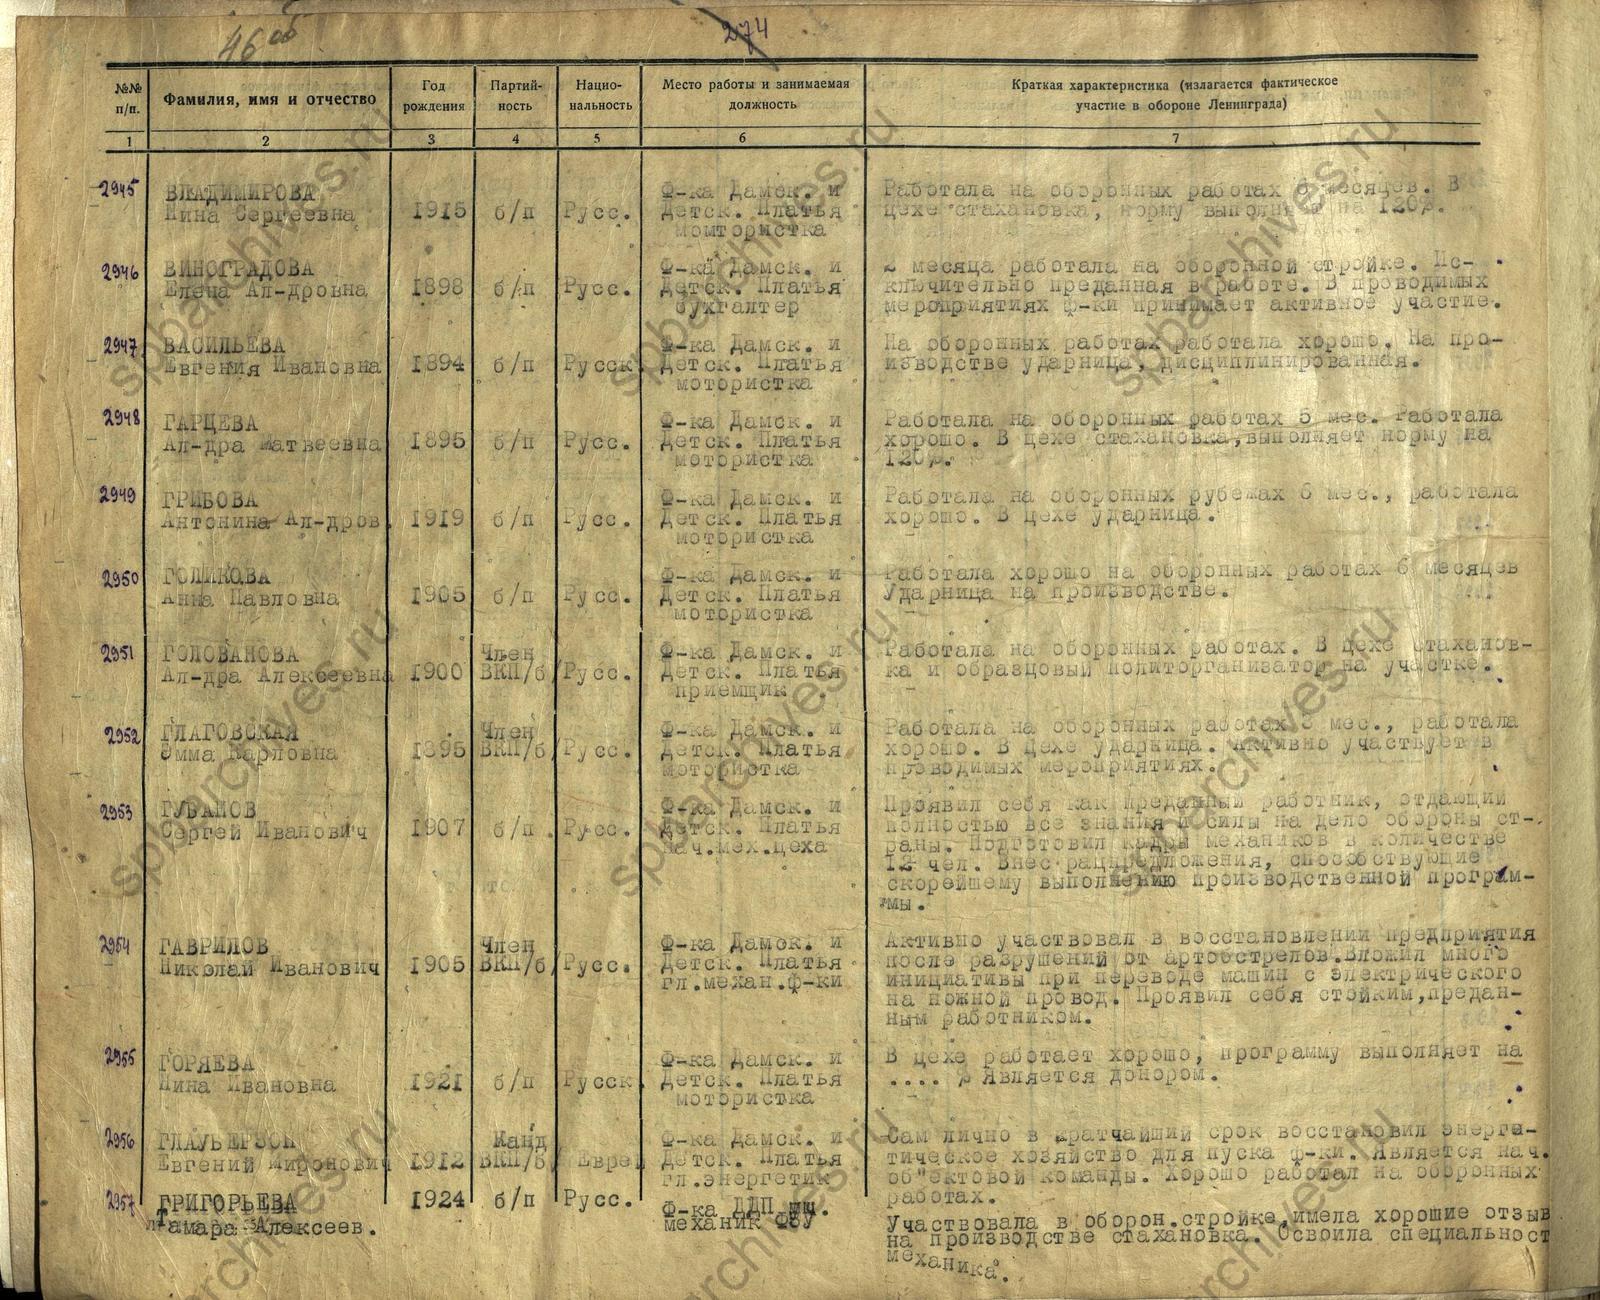 46 об
274
№№ п/п.
Фамилия, имя и отчество
Год рождения
Партий-ность
Нацио-нальность
Место работы и занимаемая должность
Краткая характеристика (излагается фактическое участие в обороне Ленинграда)
1 2 3 4 5 6 7
2945 ВЛАДИМИРОВА Ф-ка Дамск. и Работала на оборонных работах 6 месяцев. В
Нина Сергеевна 1915 б/п Русс. Детск. Платья цехе стахановка, норму выполняет на 120%.
момтористка
2946 ВИНОГРАДОВА Ф-ка Дамск. и 2 месяца работала на оборонной стройке. Ис-
Елена Ал-дровна 1898 б/п Русс. Детск. Платья ключительно преданная в работе. В проводимых
бухгалтер мероприятиях ф-ки принимает активное участие.
2947 ВАСИЛЬЕВА Ф-ка Дамск. и На оборонных работах работала хорошо. На про-
Евгения Ивановна 1894 б/п Русск. Детск. Платья изводстве ударница, дисциплинированная.
мотористка
2948 ГАРЦЕВА Ф-ка Дамск. и Работала на оборонных работах 5 мес. Работала
Ал-дра Матвеевна 1895 б/п Русс. Детск. Платья хорошо. В цехе стахановка,выполняет норму на
мотористка 120%.
2949 ГРИБОВА Ф-ка Дамск. и Работала на оборонных рубежах 6 мес., работала
Антонина Ал-дров. 1919 б/п Русс. Детск. Платья хорошо. В цехе ударница.
мотористка
2950 ГОЛИКОВА Ф-ка Дамск. и Работала хорошо на оборонных работах 6 месяцев
Анна Павловна 1905 б/п Русс. Детск. Платья Ударница на производстве.
мотористка
2951 ГОЛОВАНОВА Член Ф-ка Дамск. и Работала на оборонных работах. В цехе стаханов-
Ал-дра Алексеевна 1900 ВКП/б/ Русс. Детск. Платья ка и образцовый политорганизатор на участке.
приемщик
2952 ГЛАГОВСКАЯ Член Ф-ка Дамск. и Работала на оборонных работах 3 мес., работала
Эмма Карловна 1895 ВКП/б/ Русс. Детск. Платья хорошо. В цехе ударница. Активно участвует в
мотористка проводимых мероприятиях.
2953 ГУБАНОВ Ф-ка Дамск. и Проявил себя как преданный работник, отдающий
Сергей Иванович 1907 б/п Русс. Детск. Платья полностью все знания и силы на дело обороны ст-
нач.мех.цеха раны. Подготовил кадры механиков в количестве
12 чел. Внес рацпредложения, способствующие
скорейшему выполнению производственной програм-
мы.
2954 ГАВРИЛОВ Член Ф-ка Дамск. и Активно участвовал в восстановлении предприятия
Николай Иванович 1905 ВКП/б/ Русс. Детск. Платья после разрушений от артобстрелов.Вложил много
гл.механ.ф-ки инициативы при переводе машин с электрического
на ножной провод. Проявил себя стойким,предан-
ным работником.
2955 ГОРЯЕВА Ф-ка Дамск. и В цехе работает хорошо, программу выполняет на
Нина Ивановна 1921 б/п Русск. Детск. Платья .... % Является донором.
мотористка
2956 ГЛАУБЕРЗОН Канд Ф-ка Дамск. и Сам лично в кратчайший срок восстановил энерге-
Евгений Миронович 1912 ВКП/б/ Еврей Детск. Платья тическое хозяйство для пуска ф-ки. Является нач.
гл.энергетик об"ектовой команды. Хорошо работал на оборонных
работах.
2957 ГРИГОРЬЕВА 1924 б/п Русс. Ф-ка ДДП
Тамара Алексеев. механик ФЗУ Участвовала в оборон.стройке,имела хорошие отзыв
на производстве стахановка. Освоила специальност
механика.
spbarchives.ru